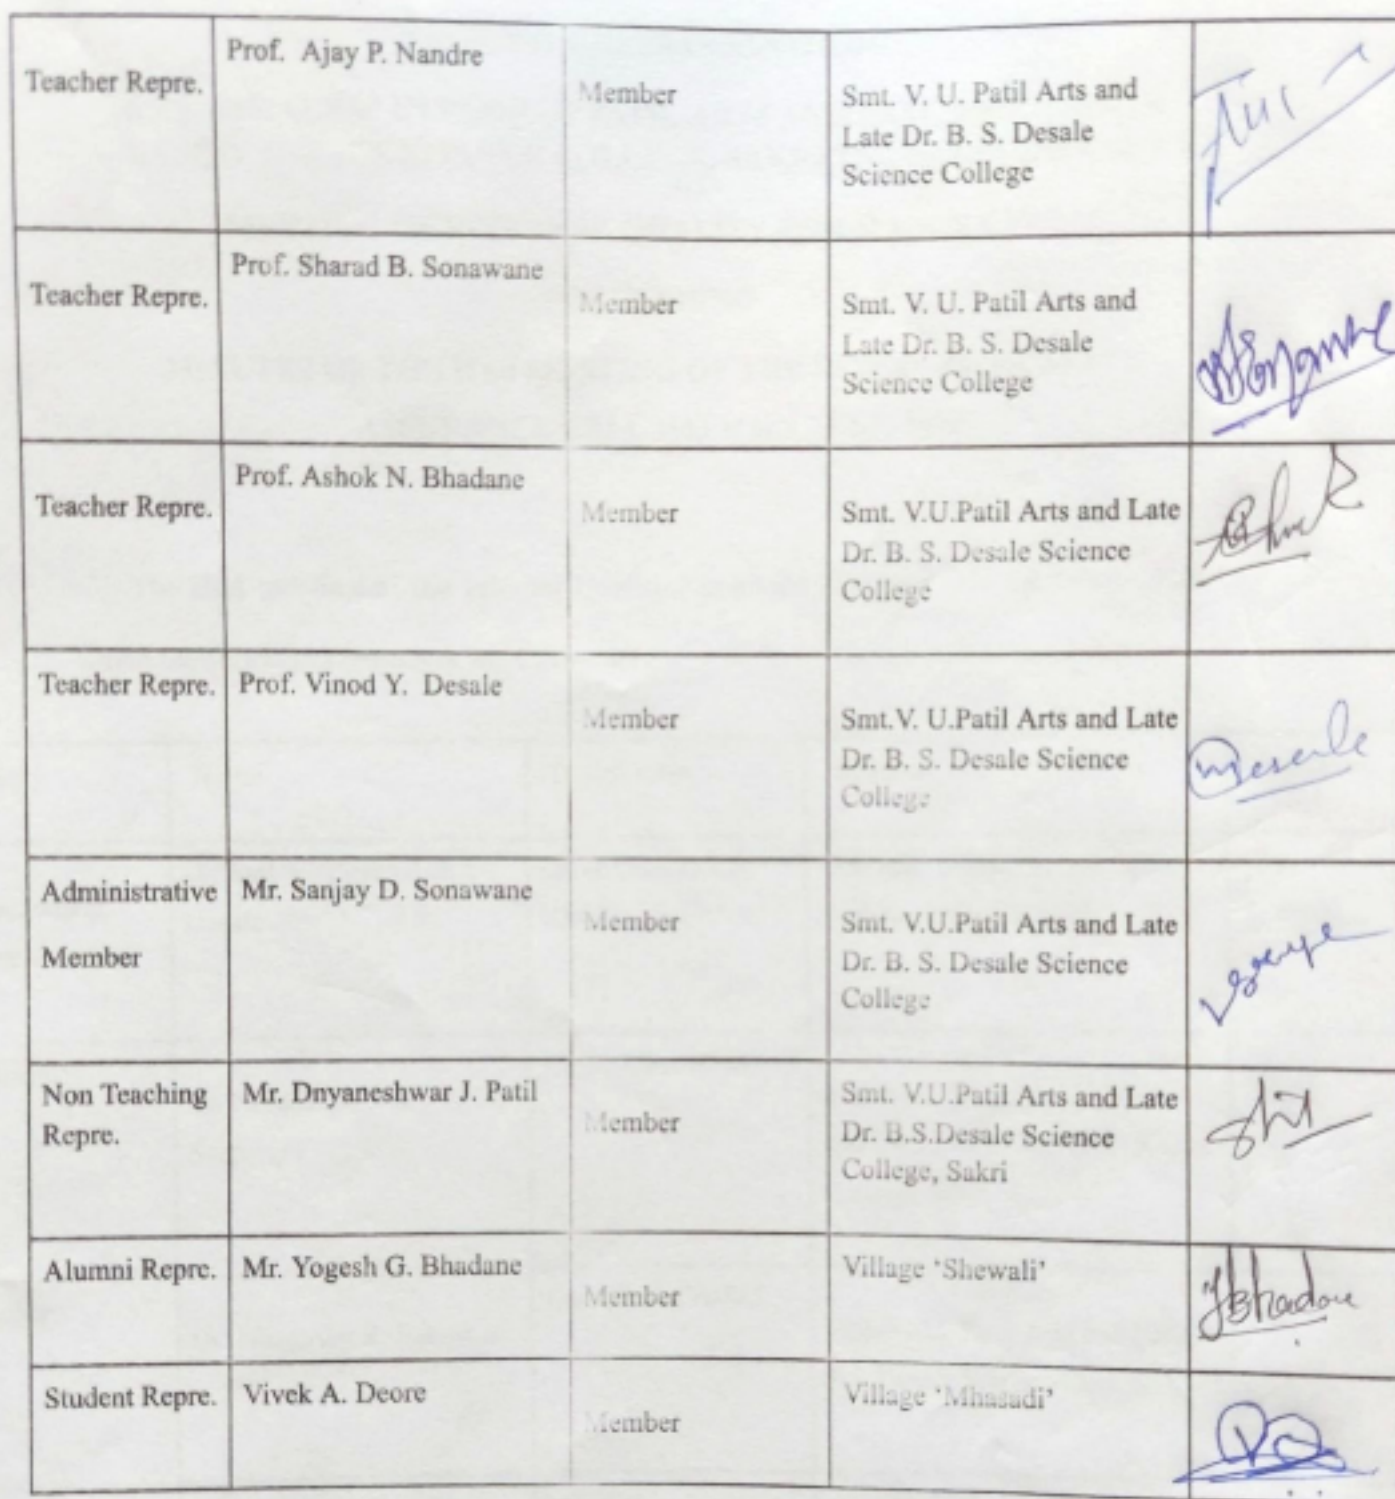 Teacher Repre.
Prof. Ajay P. Nandre
Member
Smt. V. U. Patil Arts and
Late Dr. B. S. Desale
Science College
Teacher Repre.
Prof. Sharad B. Sonawane
Member
Smt. V. U. Patil Arts and
Late Dr. B. S. Desale
Science College
Teacher Repre.
Prof. Ashok N. Bhadane
Member
Smt. V.U.Patil Arts and Late
Dr. B. S. Desale Science
College
Teacher Repre.
Prof. Vinod Y. Desale
Member
Smt.V. U.Patil Arts and Late
Dr. B. S. Desale Science
College
Administrative
Member
Mr. Sanjay D. Sonawane
Member
Smt. V.U.Patil Arts and Late
Dr. B. S. Desale Science
College
Non Teaching
Repre.
Mr. Dnyaneshwar J. Patil
Member
Smt. V.U.Patil Arts and Late
Dr. B.S.Desale Science
College, Sakri
Alumni Repre.
Mr. Yogesh G. Bhadane
Member
Village ‘Shewali’
Student Repre.
Vivek A. Deore
Member
Village ‘Mhasadi’